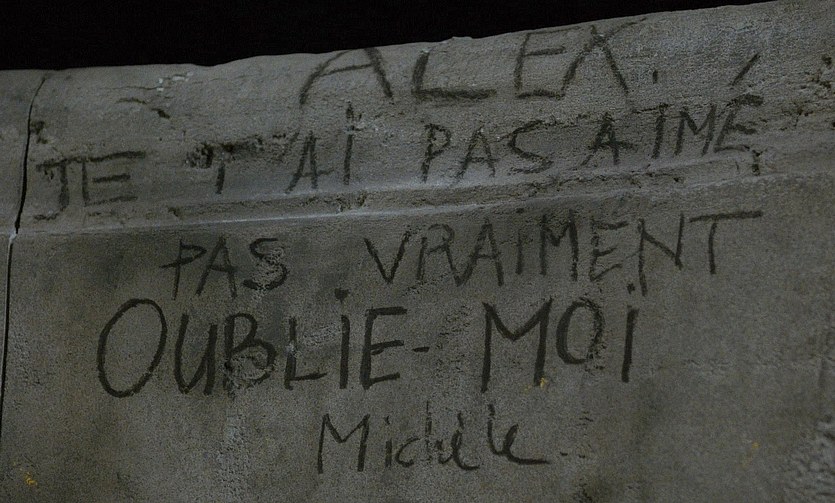 ALEX.
JE T'AI PAS AIMÉ
PAS VRAIMENT
OUBLIE-MOI
Michèle